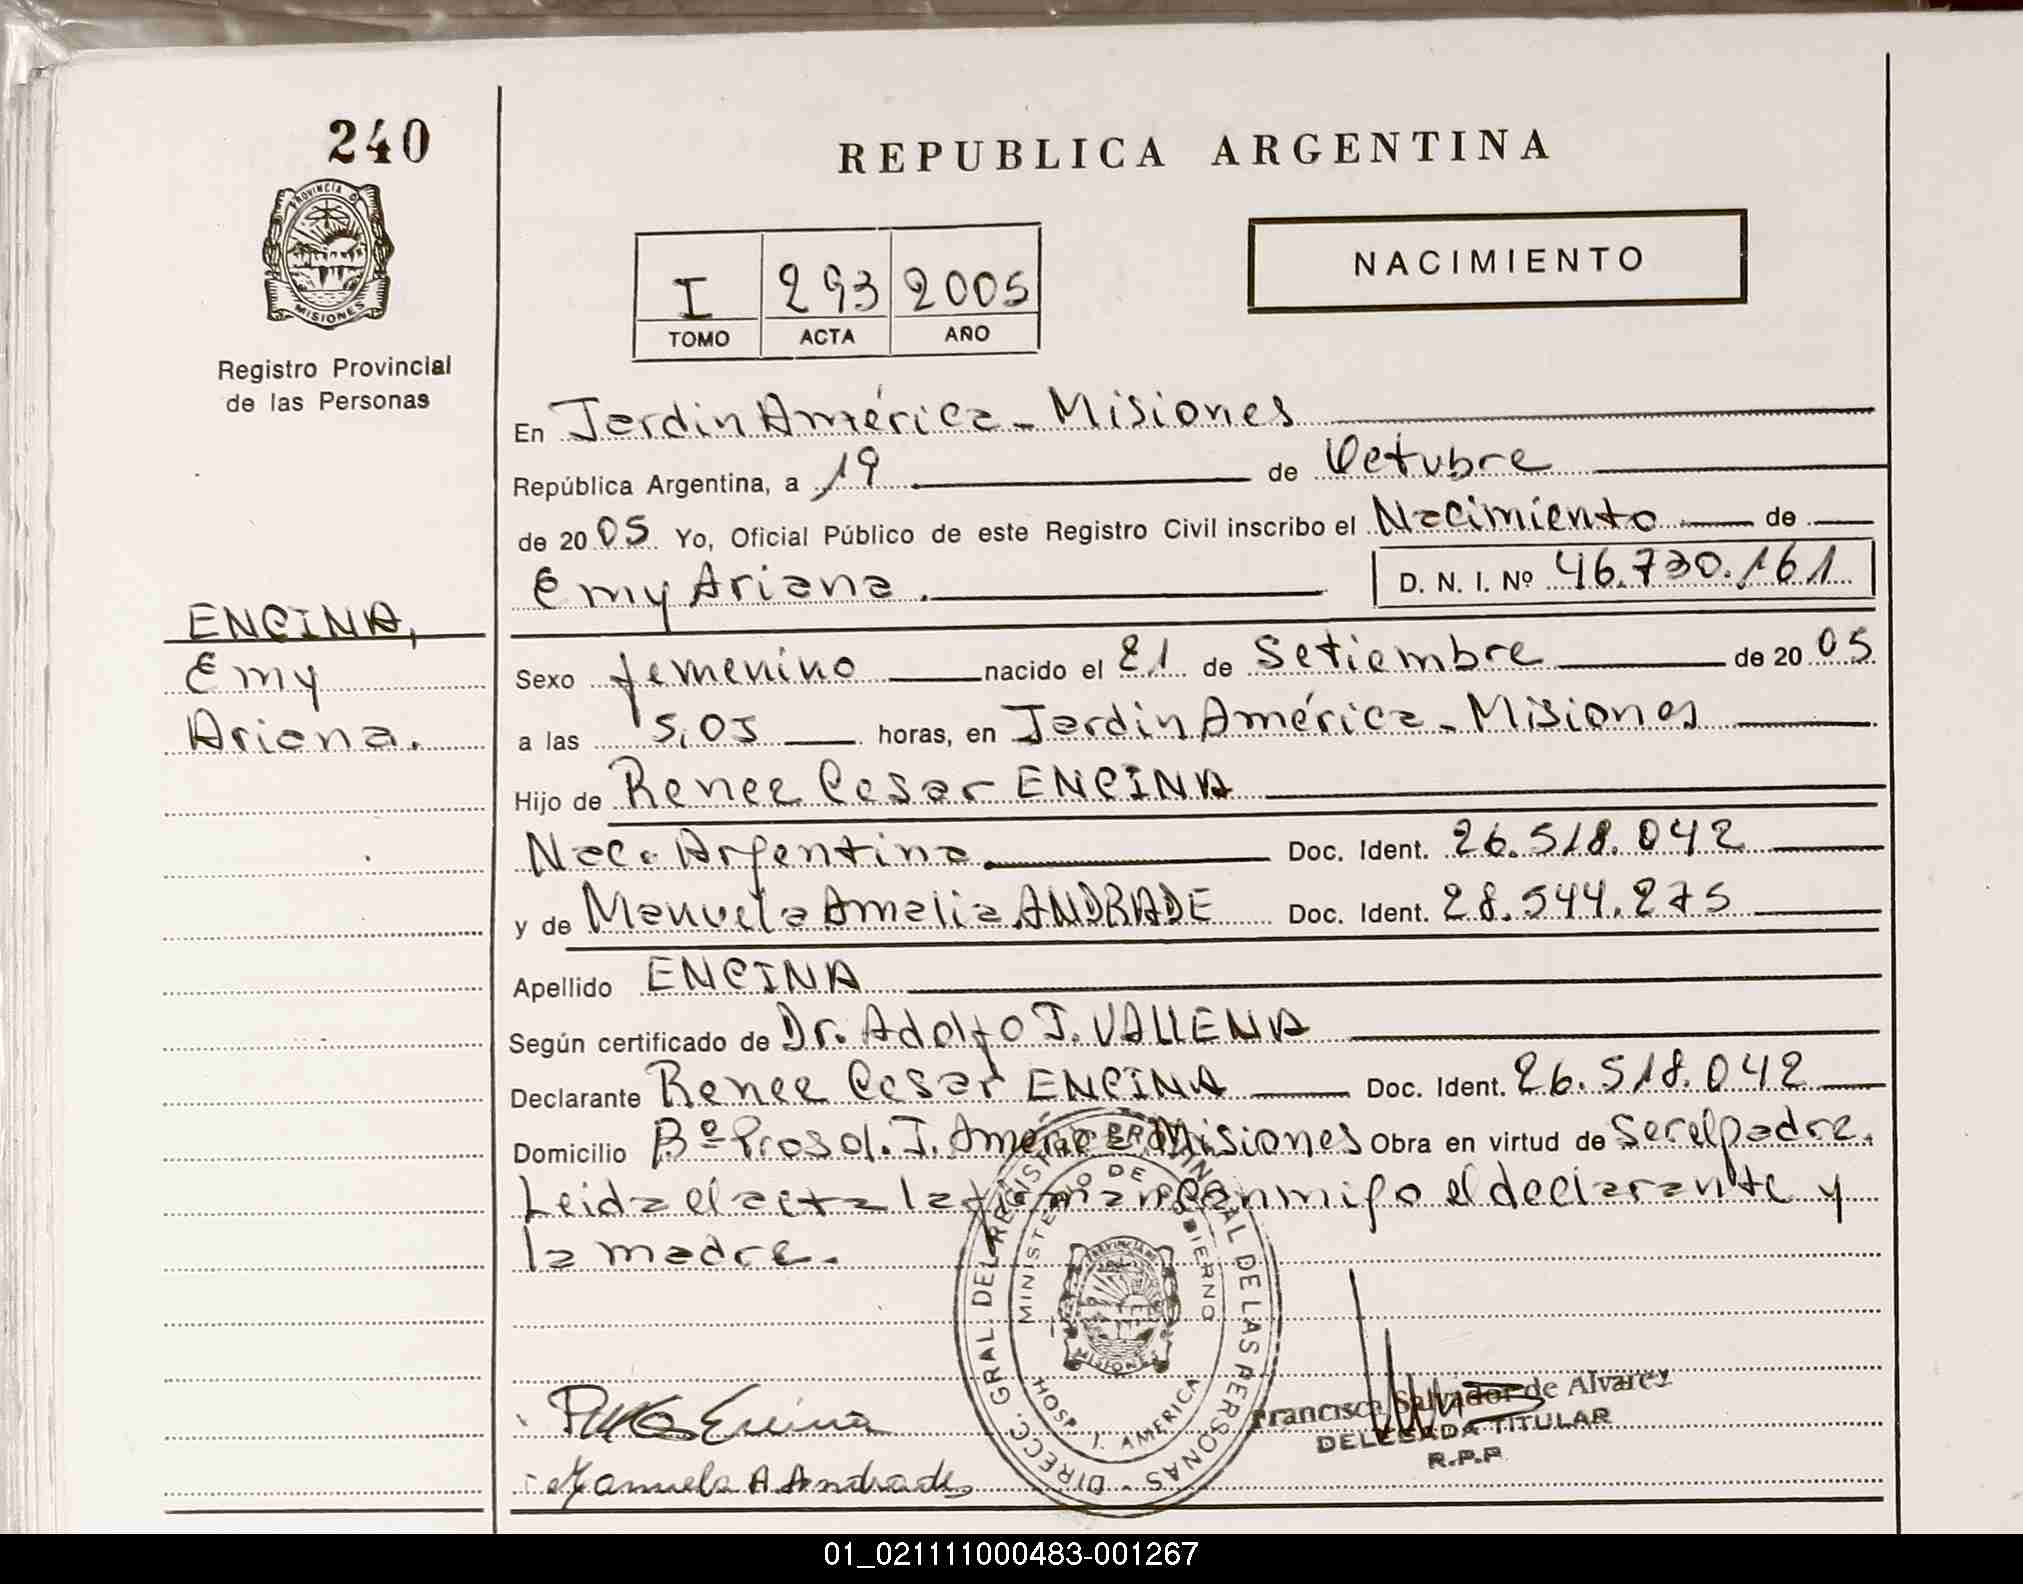 240
PROVINCIA DE
MISIONES
Registro Provincial
de las Personas
REPUBLICA ARGENTINA
I 293 2005
TOMO ACTA AÑO
NACIMIENTO
En Jardin América - Misiones
República Argentina, a 19 de Octubre
de 2005 Yo, Oficial Público de este Registro Civil inscribo el Nacimiento de
Emy Ariana. D. N. I. Nº 46.730.161
ENCINA,
Emy
Ariana.
Sexo femenino nacido el 21 de Setiembre de 2005
a las 5,05 horas, en Jardin América - Misiones
Hijo de Renee Cesar ENCINA
Nac. Argentina. Doc. Ident. 26.518.042
y de Manuela Amalia ANDRADE Doc. Ident. 28.544.275
Apellido ENCINA
Según certificado de Dr. Adolfo J. VALLENA
Declarante Renee Cesar ENCINA Doc. Ident. 26.518.042
Domicilio Bº Prosol. J. América Misiones Obra en virtud de Ser el padre.
Leida el acta la firman conmigo el declarante y
la madre.
DIRECC. GRAL. DEL REGISTRO PROVINCIAL DE LAS PERSONAS
MINISTERIO DE GOBIERNO
HOSP. J. AMERICA
PROVINCIA DE
MISIONES
Encina
Manuela A Andrade
Francisca Salvador de Alvarez
DELEGADA TITULAR
R.P.P.
01_021111000483-001267